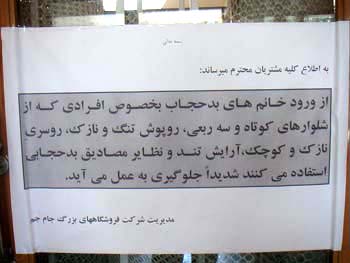 بسمه تعالی
به اطلاع کلیه مشتریان محترم میرساند:
از ورود خانم های بدحجاب بخصوص افرادی که از
شلوارهای کوتاه و سه ربعی، روپوش تنگ و نازک، روسری
نازک و کوچک،آرایش تند و نظایر مصادیق بدحجابی
استفاده می کنند شدیداً جلوگیری به عمل می آید.
مدیریت شرکت فروشگاههای بزرگ جام جم